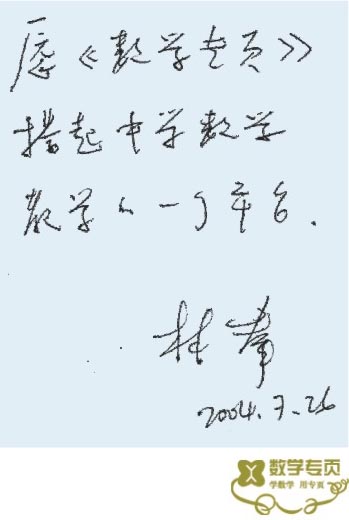 愿《数学专页》
搭起中学数学
教学的一个平台.
2004.7.26
数学专页
学数学 用专页